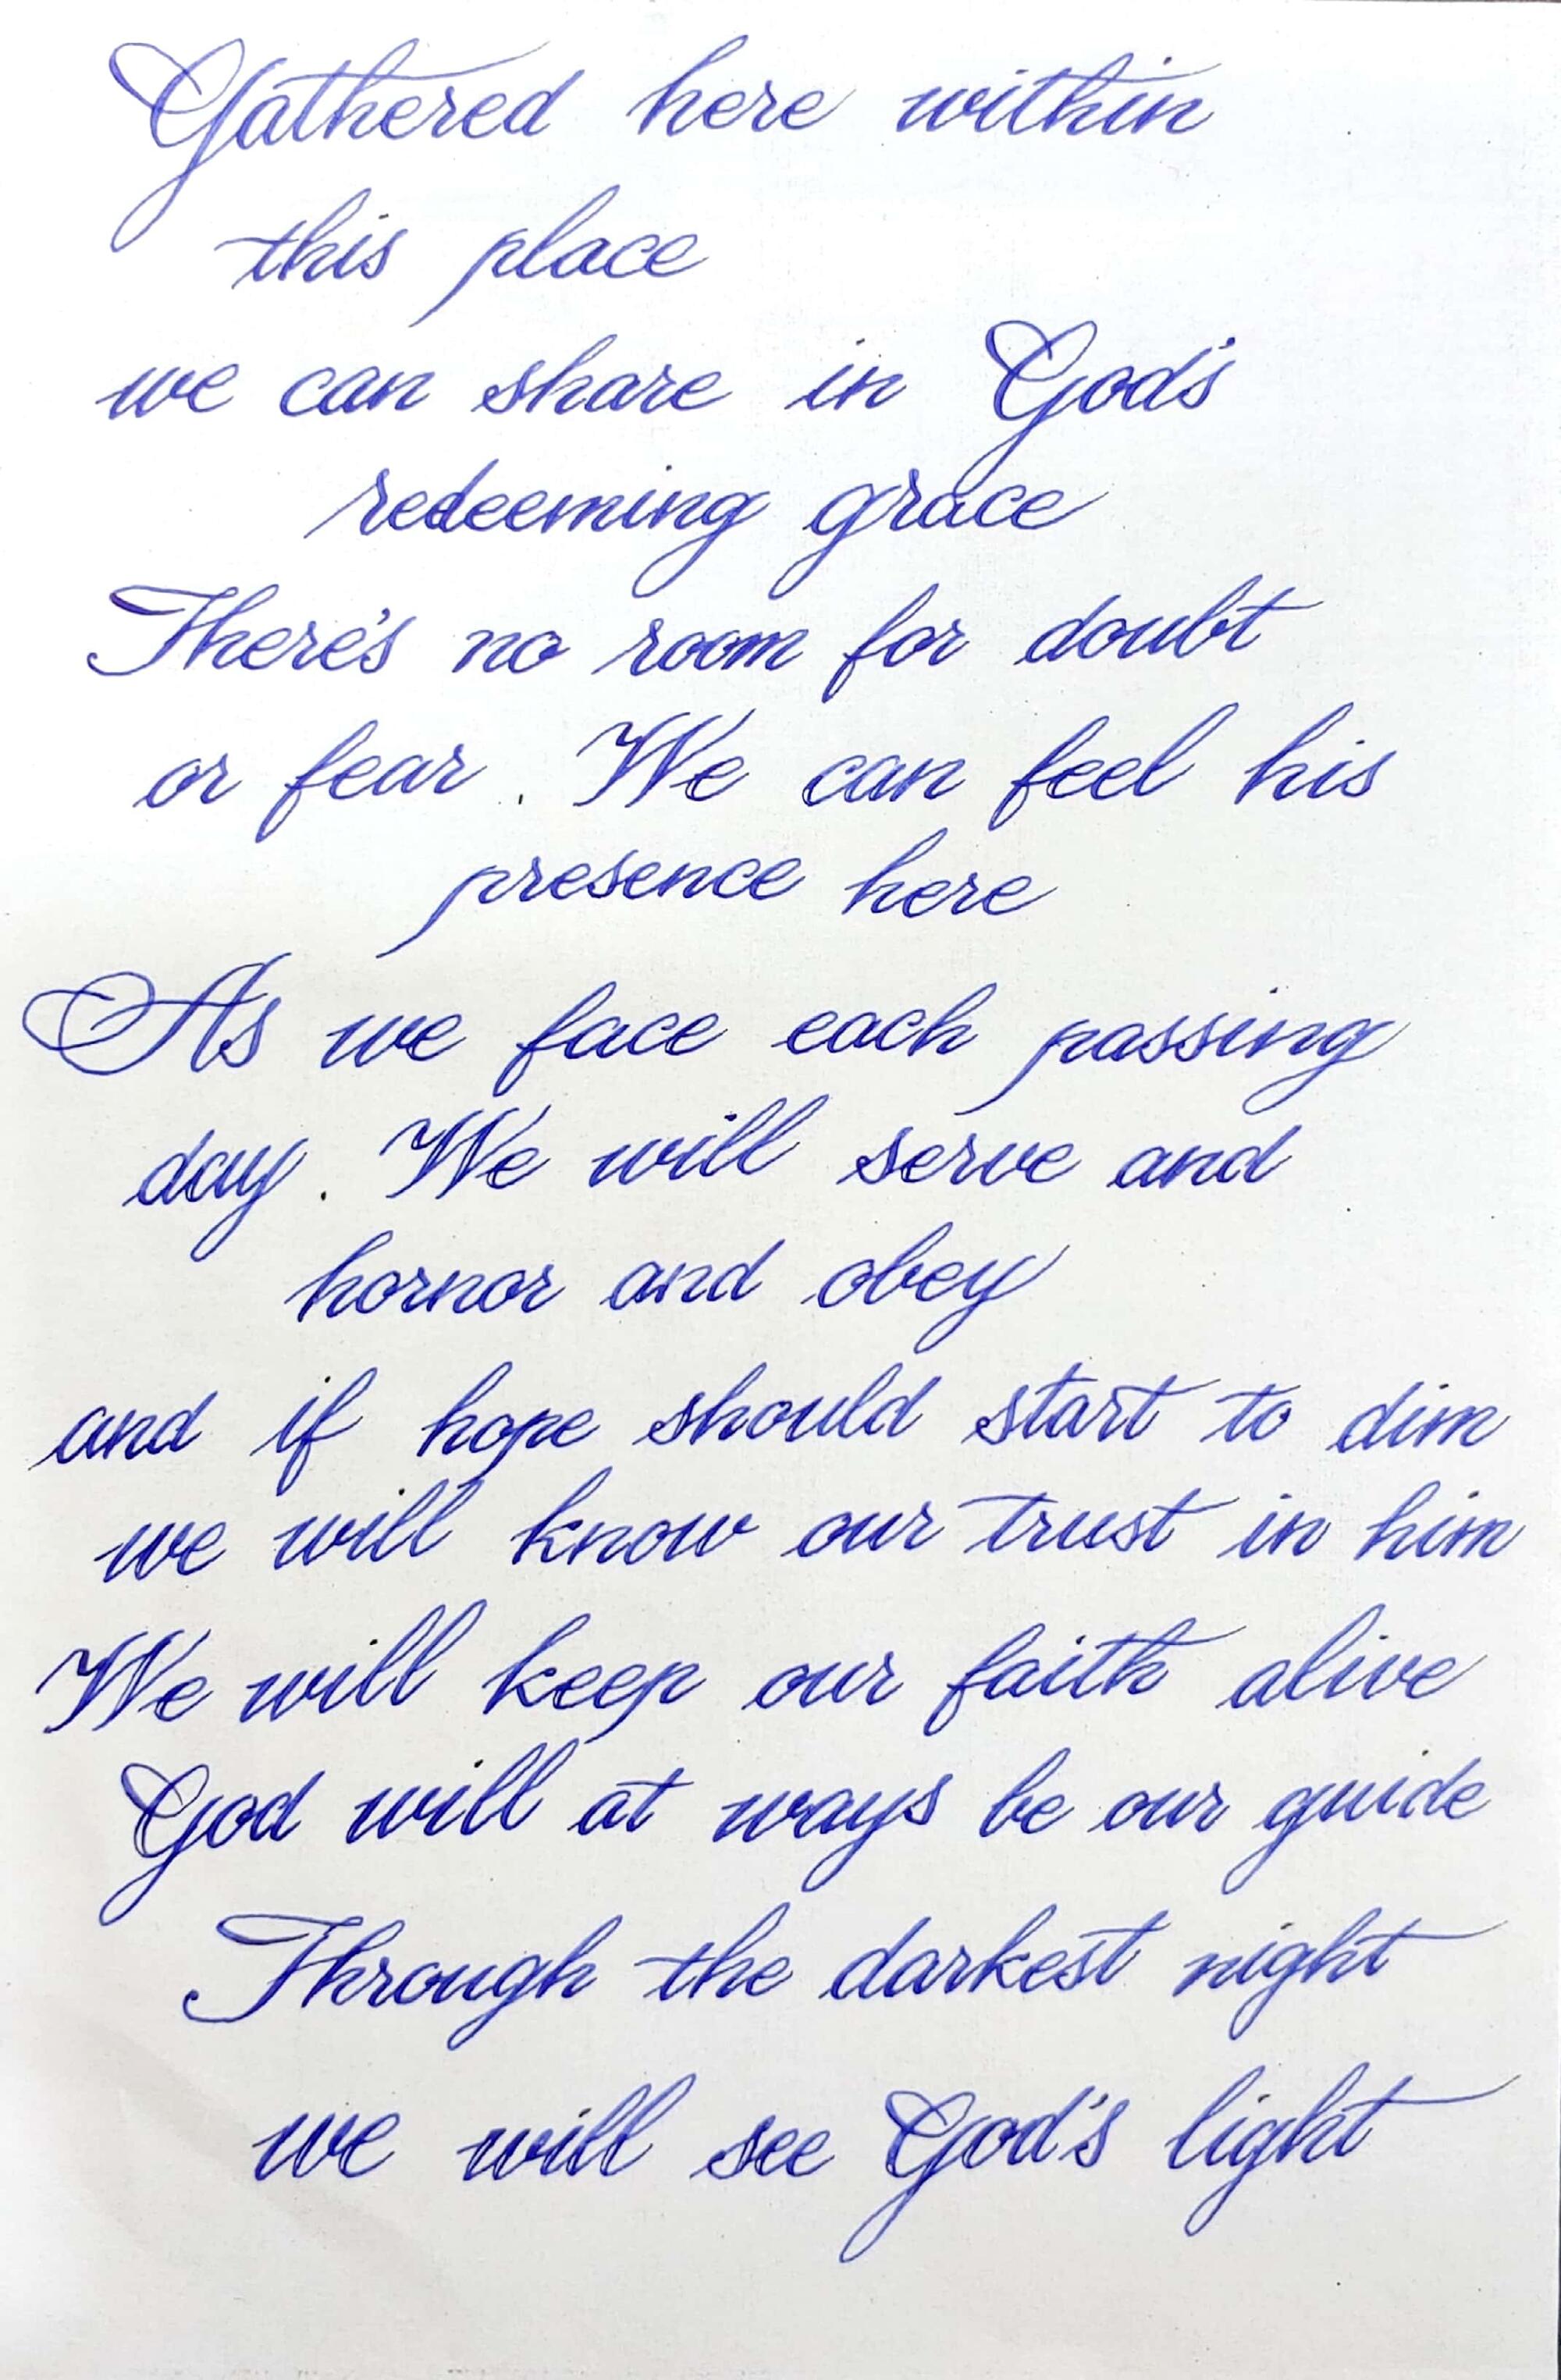 Gathered here within
this place
we can share in God's
redeeming grace
There's no room for doubt
or fear. We can feel his
presence here
As we face each passing
day. We will serve and
hornor and obey
and if hope should start to dim
we will know our trust in him
We will keep our faith alive
God will at ways be our guide
Through the darkest night
we will see God's light